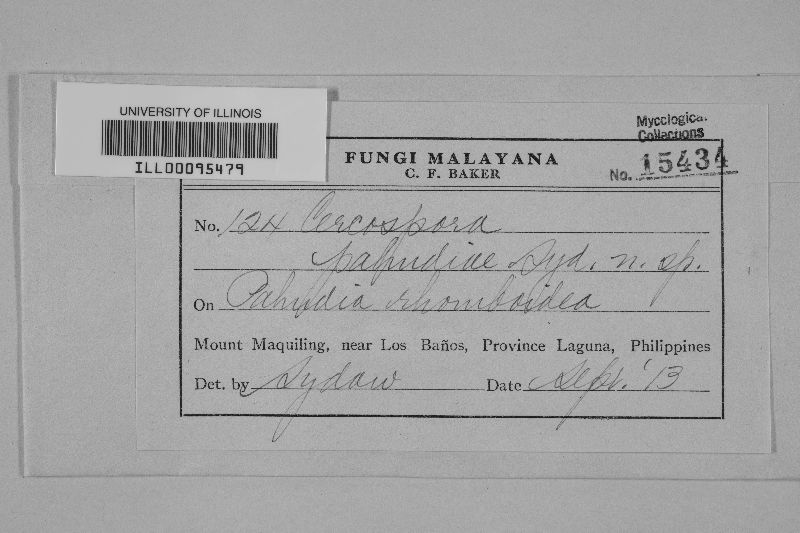 UNIVERSITY OF ILLINOIS
ILL00095479
Mycological
Collections
No. 15434
FUNGI MALAYANA
C. F. BAKER
No. 124 Cercospora
pahudiae Syd. n. sp.
On Pahudia rhomboidea
Mount Maquiling, near Los Baños, Province Laguna, Philippines
Det. by Sydow Date Sept. '13